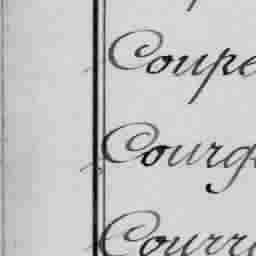 Coupe
Courg
Courr